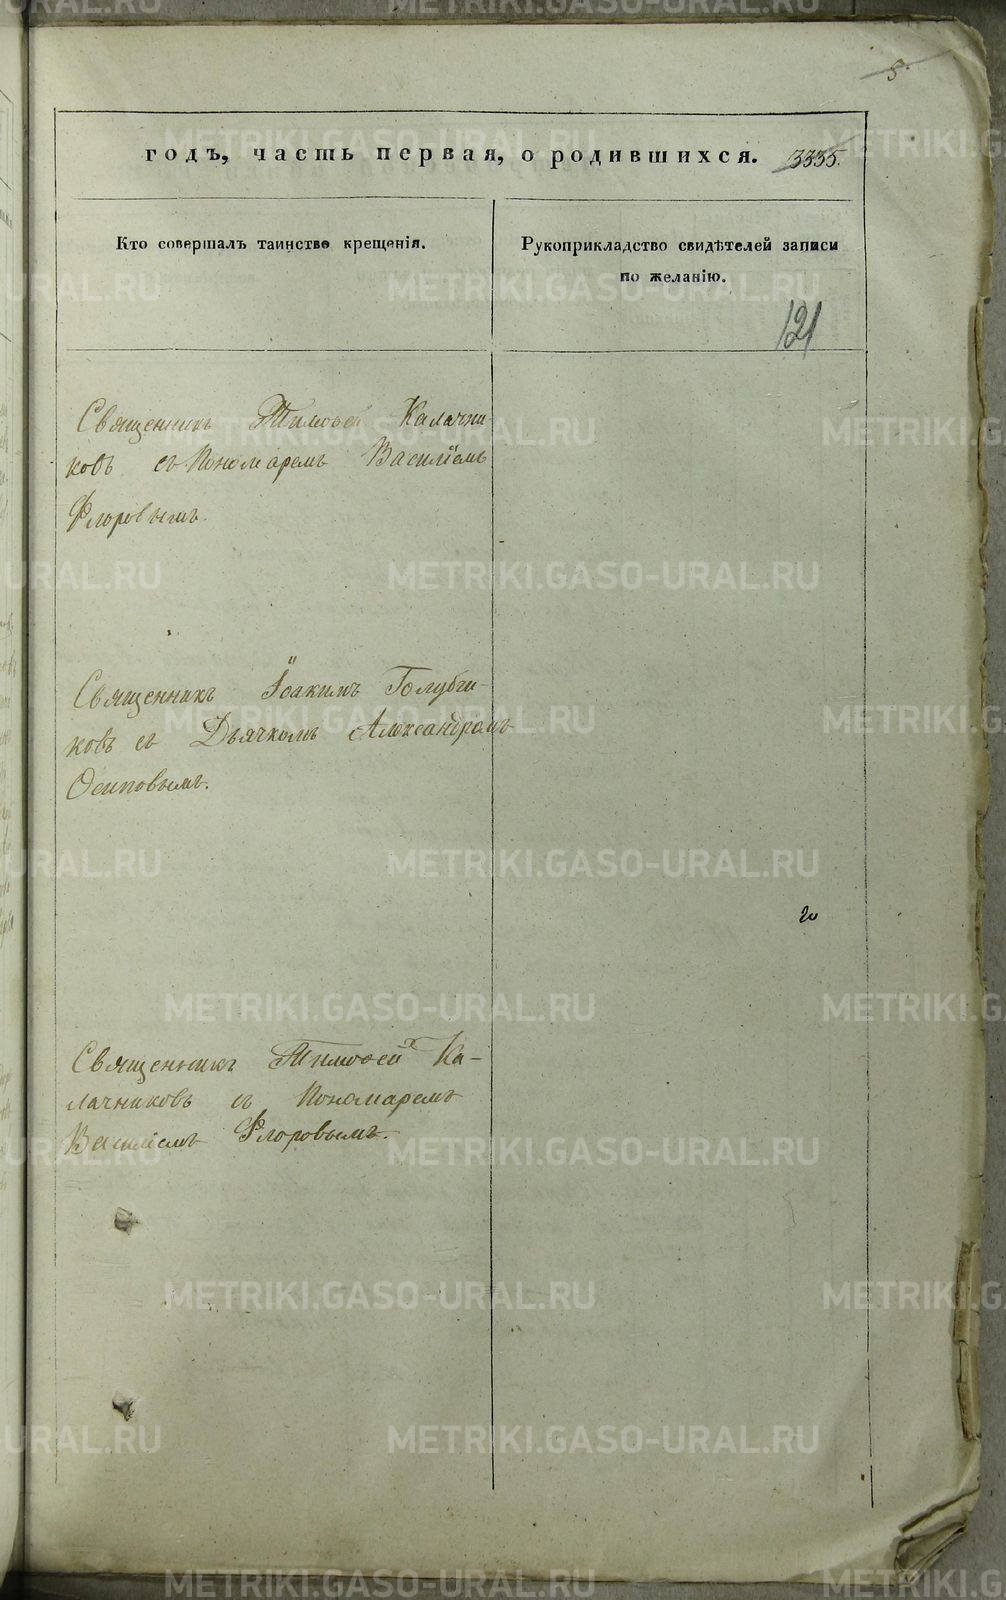 5
годъ, часть первая, о родившихся. 3335.
Кто совершалъ таинство крещенія.
Рукоприкладство свидѣтелей записи
по желанію.
121
Священникъ Тимоѳей Калачни
ковъ съ Пономаремъ Василіемъ
Флоровымъ.
Священникъ Іоакимъ Голубчи-
ковъ съ Дьячкомъ Александромъ
Осиповымъ.
Священникъ Тимоѳей Ка-
лачниковъ съ Пономаремъ
Василіемъ Флоровымъ.
METRIKI.GASO-URAL.RU